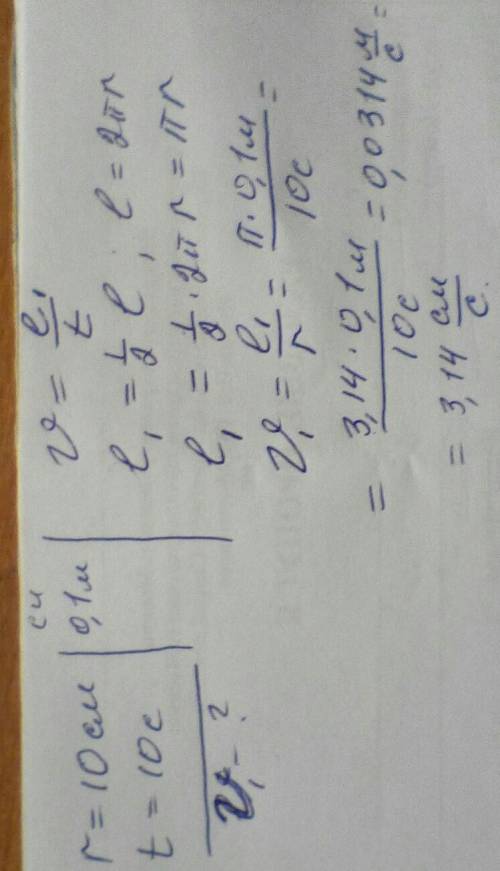 СИ
r = 10 см | 0,1 м
t = 10 с
v₁ - ?
v = l₁/t
l₁ = 1/2 l ; l = 2πr
l₁ = 1/2 · 2πr = πr
v₁ = l₁/r = π · 0,1 м / 10 с =
= 3,14 · 0,1 м / 10 с = 0,0314 м/с =
= 3,14 см/с.